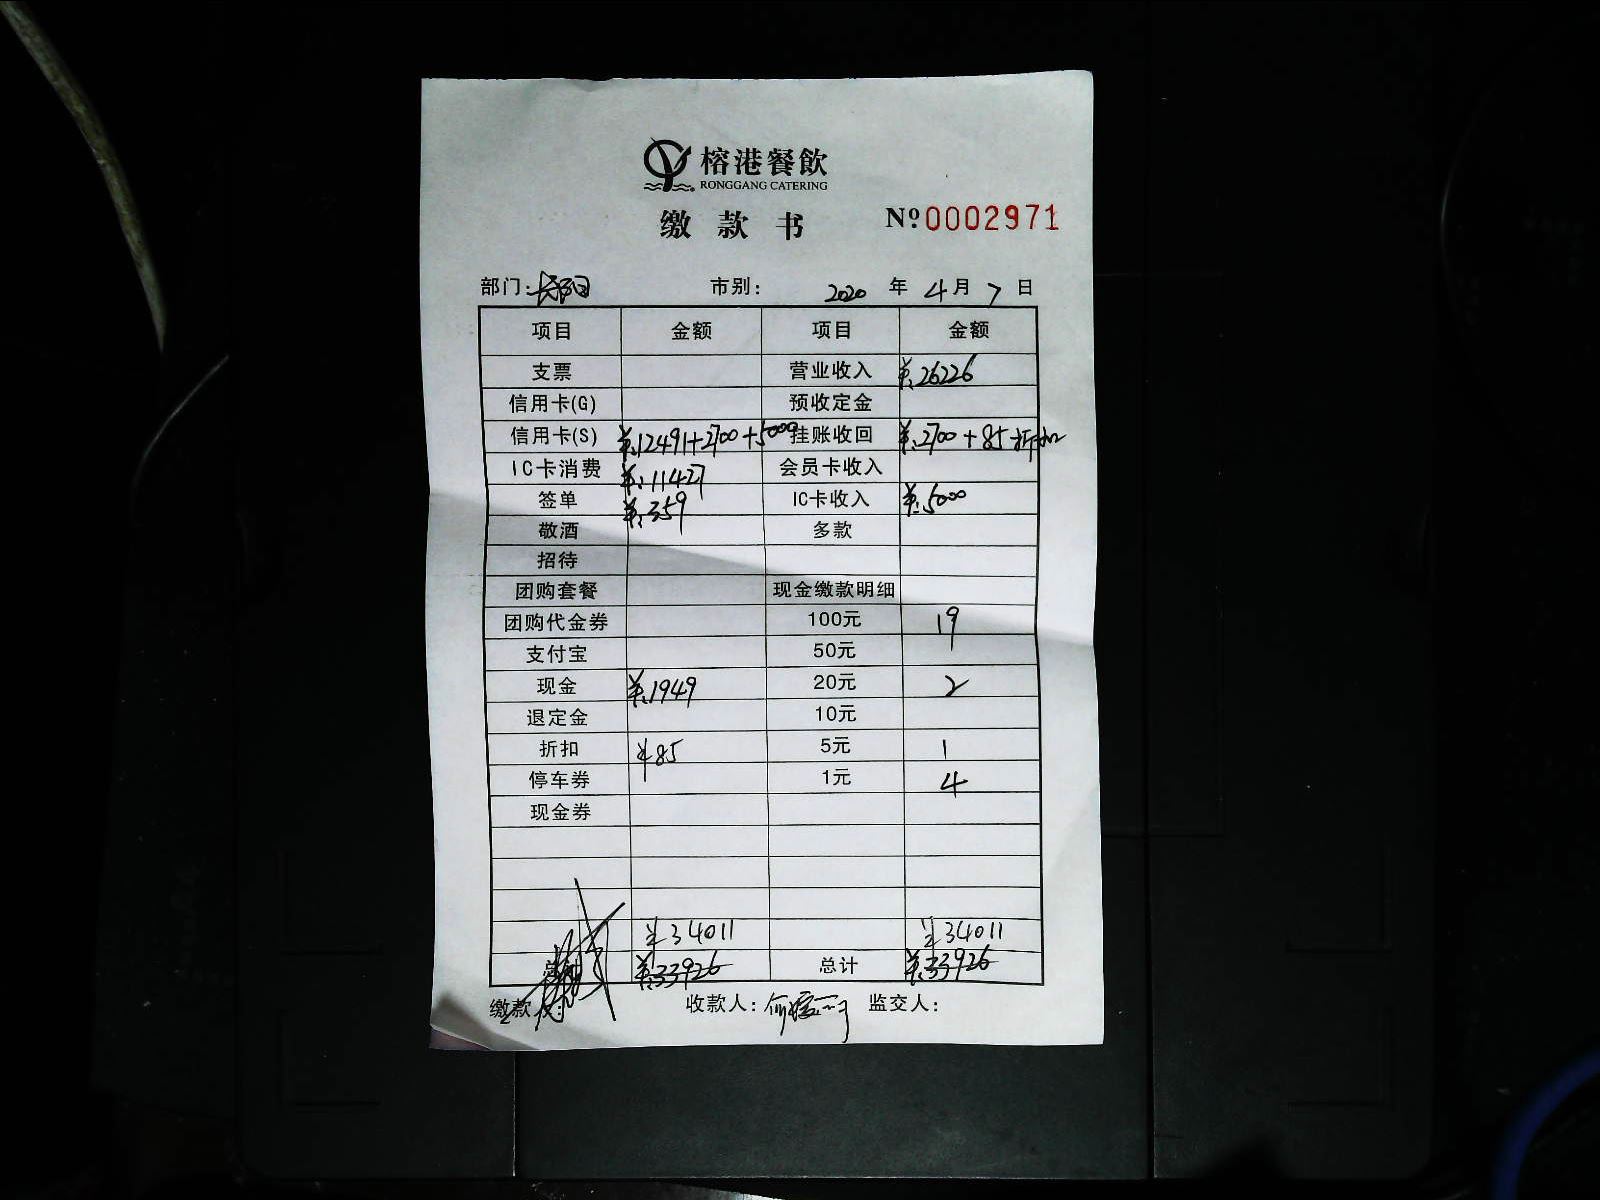 榕港餐飲
RONGGANG CATERING
缴款书 Nº0002971
部门: 市别: 2020 年 4 月 7 日
项目 金额 项目 金额
支票 营业收入 ¥:26226
信用卡(G) 预收定金
信用卡(S) ¥:12491+2700+5000 挂账收回 ¥:2700+85折扣
IC卡消费 ¥:11427 会员卡收入
签单 ¥:359 IC卡收入 ¥:5000
敬酒 多款
招待
团购套餐 现金缴款明细
团购代金券 100元 19
支付宝 50元
现金 ¥:1949 20元 2
退定金 10元
折扣 ¥85 5元 1
停车券 1元 4
现金券
¥34011 ¥34011
¥:33926 总计 ¥:33926
缴款 : 收款人: 监交人: